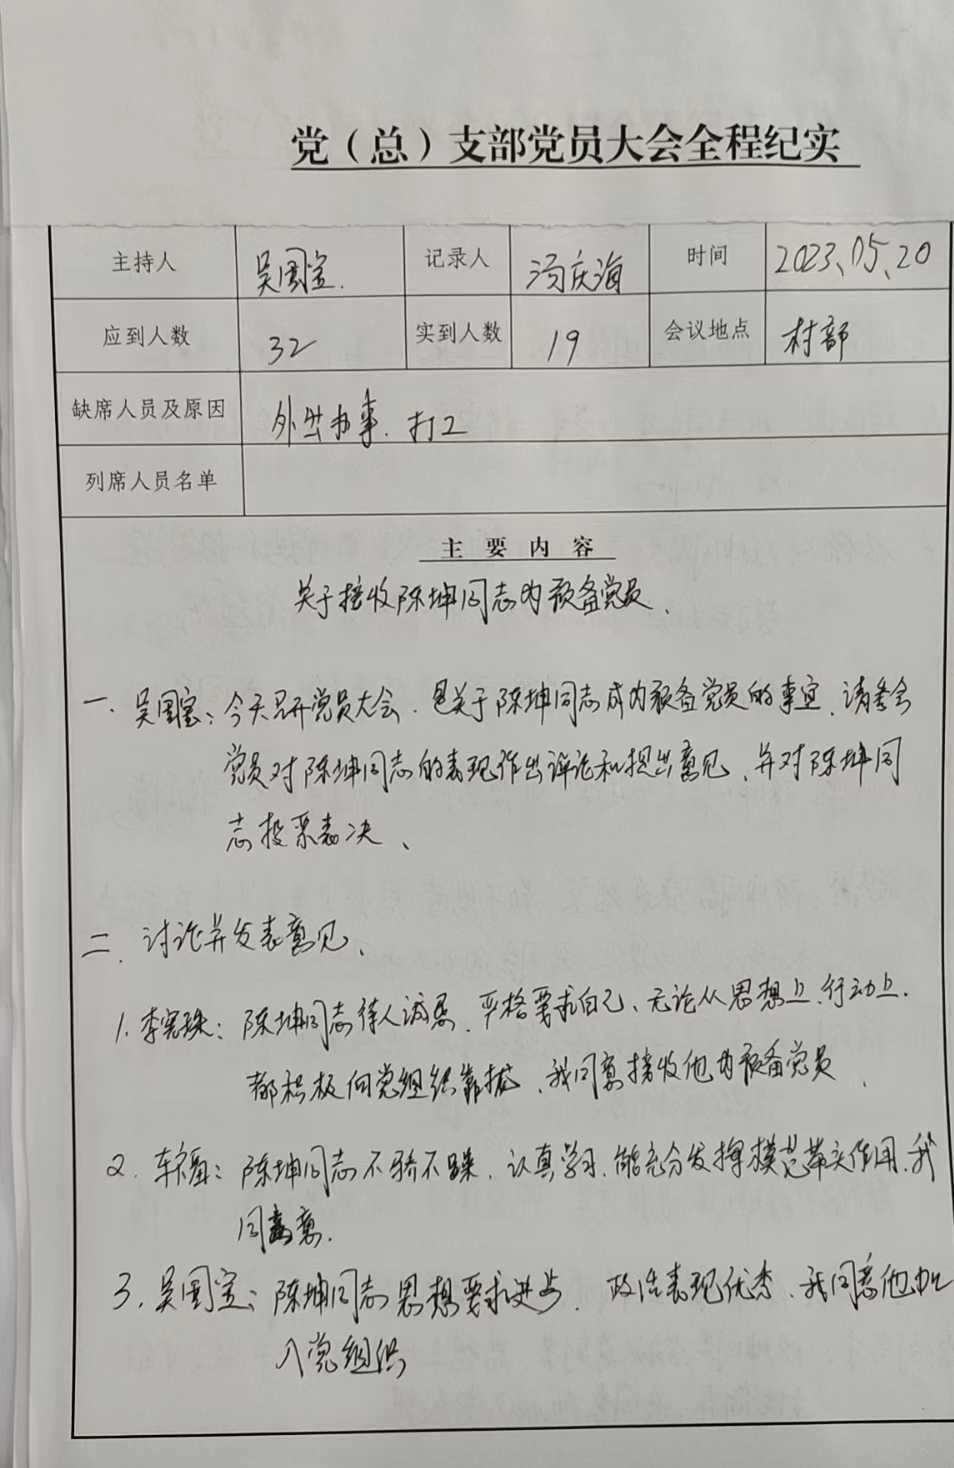 党（总）支部党员大会全程纪实
主持人 吴国宝. 记录人 汤庆海 时间 2023、05、20
应到人数 32 实到人数 19 会议地点 村部
缺席人员及原因 外出办事. 打工
列席人员名单
主要内容
关于接收陈坤同志为预备党员、
一、吴国宝：今天召开党员大会．是关于陈坤同志成为预备党员的事宜、请参会
党员对陈坤同志的表现作出评论和提出意见、并对陈坤同
志投票表决、
二、讨论并发表意见、
1. 李宪珠：陈坤同志待人诚恳、严格要求自己、无论从思想上、行动上．
都积极向党组织靠拢、我同意接收他为预备党员、
2. 陈坤同志不骄不躁．认真学习、能充分发挥模范带头作用、我
同意．
3. 吴国宝：陈坤同志思想要求进步．政治表现优秀、我同意他加
入党组织